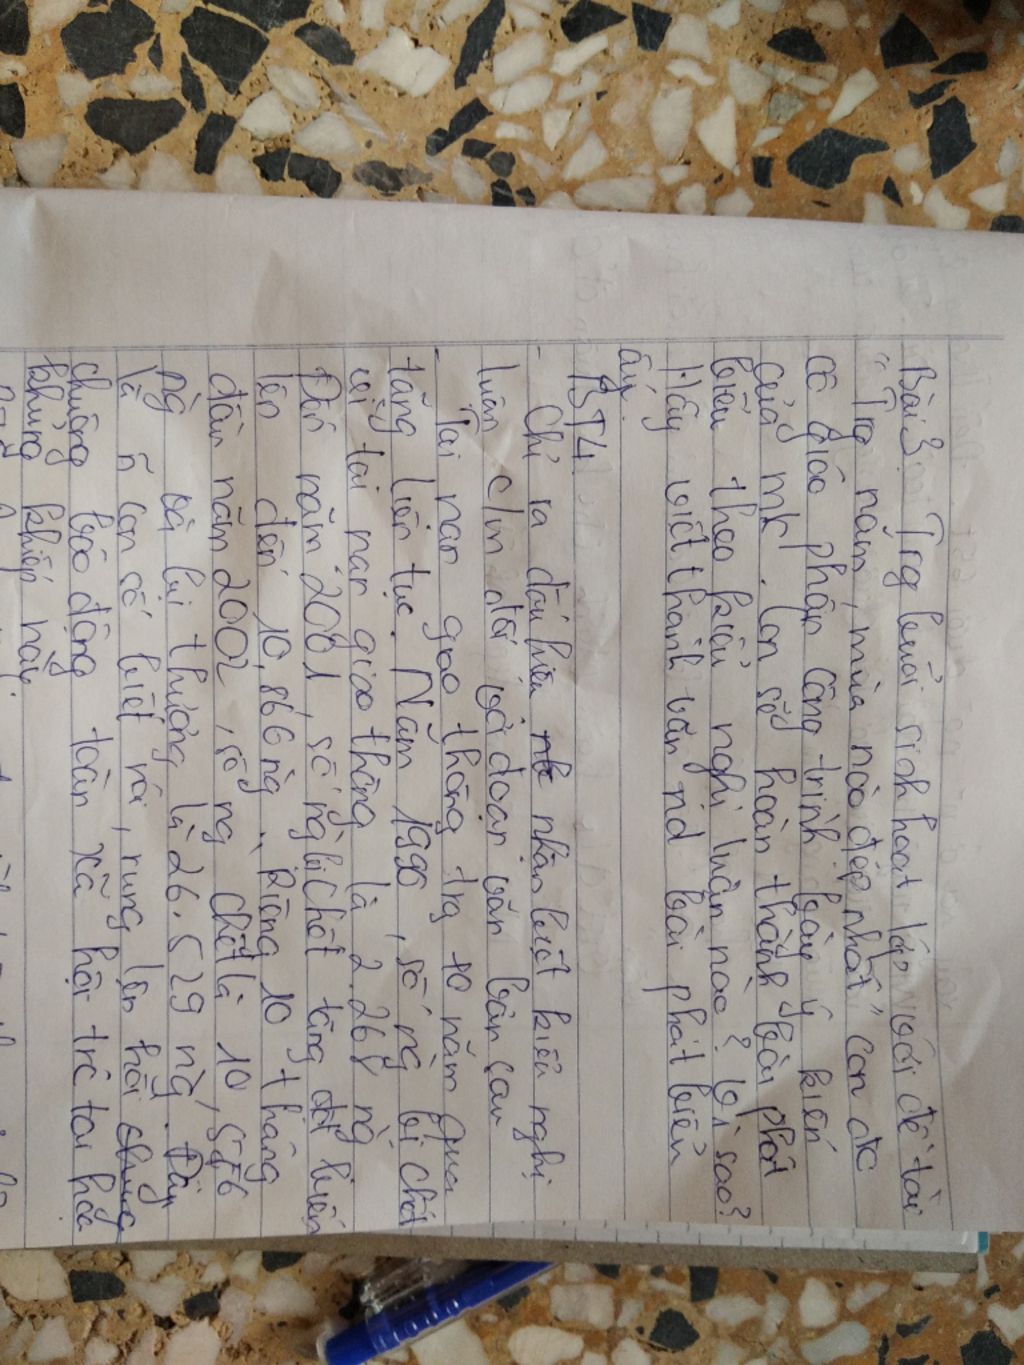 Bài 3. Trg buổi sinh hoạt lớp với đề tài
"Trg năm, mùa nào đẹp nhất" con đc
cô giáo phân công trình bày ý kiến
của mk. Con sẽ hoàn thành bài phát
biểu theo kiểu nghị luận nào? Vì sao?
Hãy viết thành văn nd bài phát biểu
ấy.
BT4
- Chỉ ra dấu hiệu nhận biết kiểu nghị
luận c/m đối với đoạn văn bản sau
- Tai nạn giao thông trg 10 năm qua
tăng liên tục. Năm 1990, số ng bị chết
vì tai nạn giao thông là 2.268 ng
Đến năm 2001, số ng bị chết tăng đột biến
lên đến 10,866 ng, Riêng 10 tháng
đầu năm 2002, số ng chết là 10,556
ng và bị thương là 26.529 ng. Đây
là ~ con số biết nói, rung lên hồi
chuông báo động toàn xã hội trc tai họa
khủng khiếp này